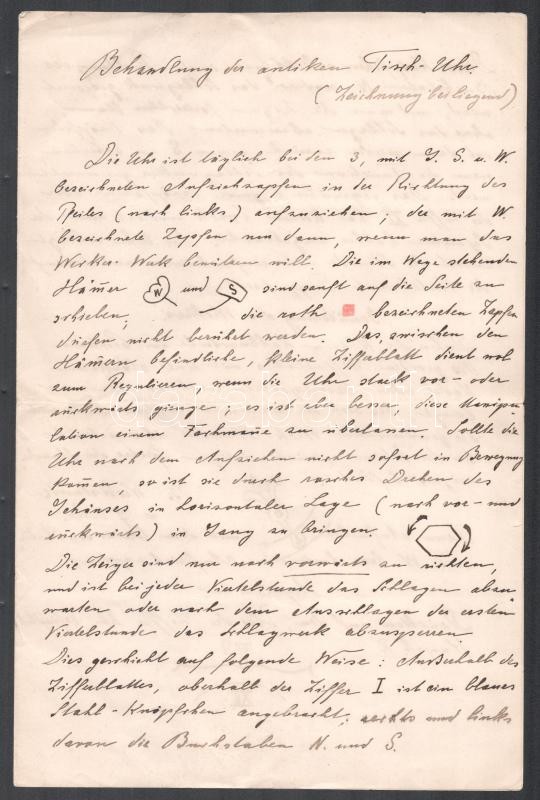 Behandlung der antiken Tisch-Uhr.
(Zeichnung beiliegend)
Die Uhr ist täglich bei den 3, mit G. S. u. W.
bezeichneten Aufziehzapfen in der Richtung des
Pfeiles (nach links) aufzuziehen; der mit W.
bezeichnete Zapfen nur dann, wenn man das
Wecker-Werk benützen will. Die im Wege stehenden
Häm̅er W und S sind sanft auf die Seite zu
schieben; die roth bezeichneten Zapfen
dürfen nicht berührt werden. Das, zwischen den
Häm̅ern befindliche, kleine Zifferblatt dient wol
zum Regulieren, wenn die Uhr stark vor- oder
rückwärts gienge; es ist aber besser, diese Manipu-
lation einem Fachman̅e zu überlassen. Sollte die
Uhr nach dem Aufziehen nicht sofort in Bewegung
kom̅en, so ist sie durch rasches Drehen des
Gehäuses in horizontaler Lage (nach vor- und
rückwärts) in Gang zu bringen.
Die Zeiger sind nur nach vorwärts zu richten,
und ist bei jeder Viertelstunde das Schlagen abzu-
warten oder nach dem Ausschlagen der ersten
Viertelstunde das Schlagwerk abzusperren.
Dies geschieht auf folgende Weise: Außerhalb des
Zifferblattes, oberhalb der Ziffer I ist ein blaues
Stahl-Knöpfchen angebracht; rechts und links
davon die Buchstaben N. und S.